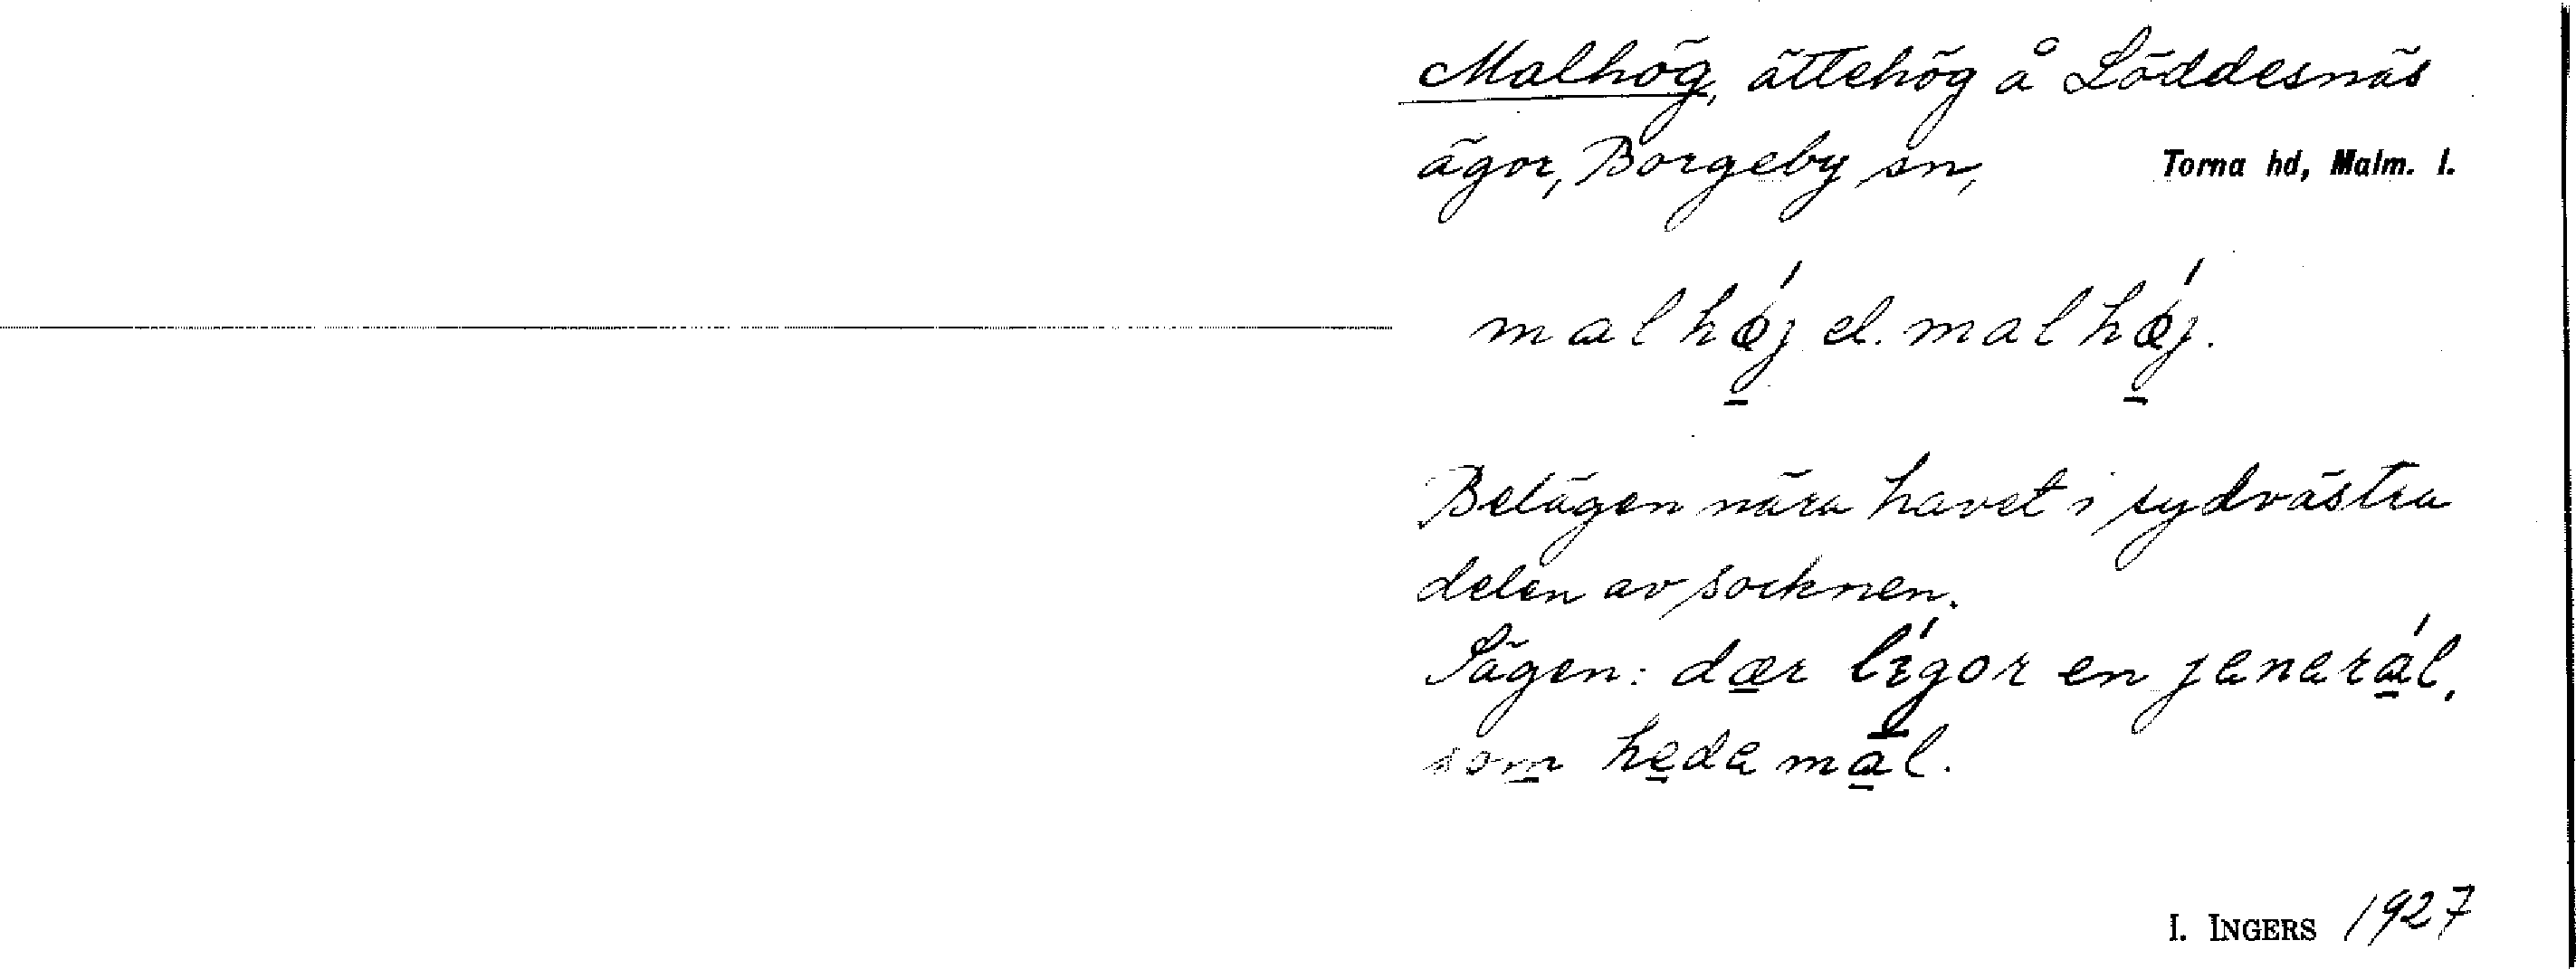 Malhög, ättehög å Löddesnäs
ägor, Borgeby sn, Torna hd, Malm. l.
malhǿj el. malhǿj.
Belägen nära havet i sydvästra
delen av socknen.
Sägen: dær lígor en jenerál,
som heda mal.
I. INGERS 1927